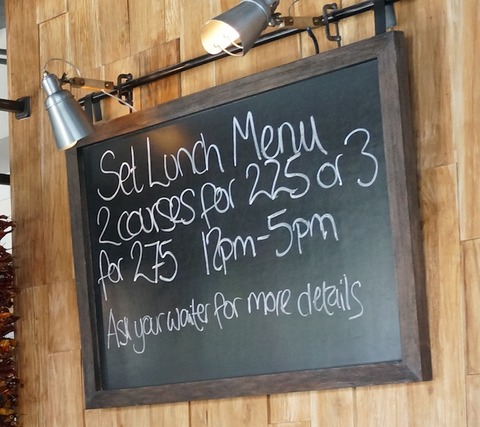 Set Lunch Menu
2 courses for 225 or 3
for 275 12pm-5pm
Ask your waiter for more details